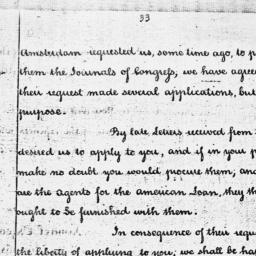 33
Amsterdam requested us, some time ago, to p
them the Journals of Congress, we have agree
their request made several applications, but
purpose.
By late letters received from
desired us to apply to you, and if in your p
make no doubt you would procure them, and
are the Agents for the American Loan, they th
ought to be furnished with them.
In consequence of their requ
the liberty of applying to you, we shall be ha